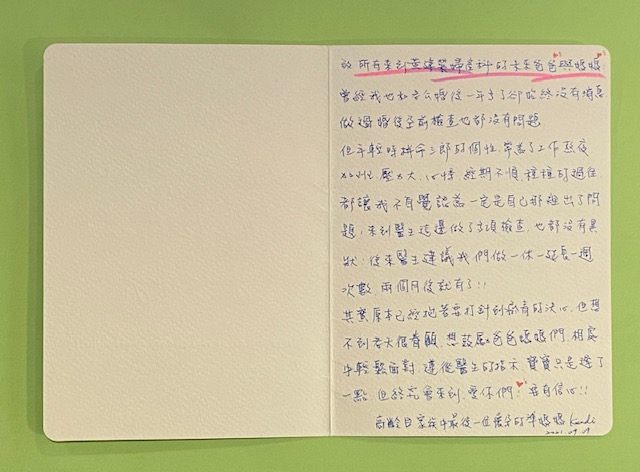 致 所有來到黃建榮婦產科的未來爸爸與媽媽
曾經我也和老公婚後一年多了卻始終沒有消息
做過婚後孕前檢查也都沒有問題
但年輕時拼命三郎的個性,常為了工作熬夜
加班,壓力大、心悸、經期不順,種種的過往
都讓我不自覺認為一定是自己那裡出了問
題,來到醫生這邊做了多項檢查,也都沒有異
狀,後來醫生建議我們做一休一延長一週
次數,兩個月後就有了!!
其實原本已經抱著要打針到底有的決心,但想
不到老天很眷顧,想鼓勵爸爸媽媽們,相處
中輕鬆面對,遵從醫生的指示,寶寶只是遲了
一點,但終究會來到,愛你們!要有信心!!
高齡且家族中最後一位懷孕的準媽媽 Kandi
2021.09.09